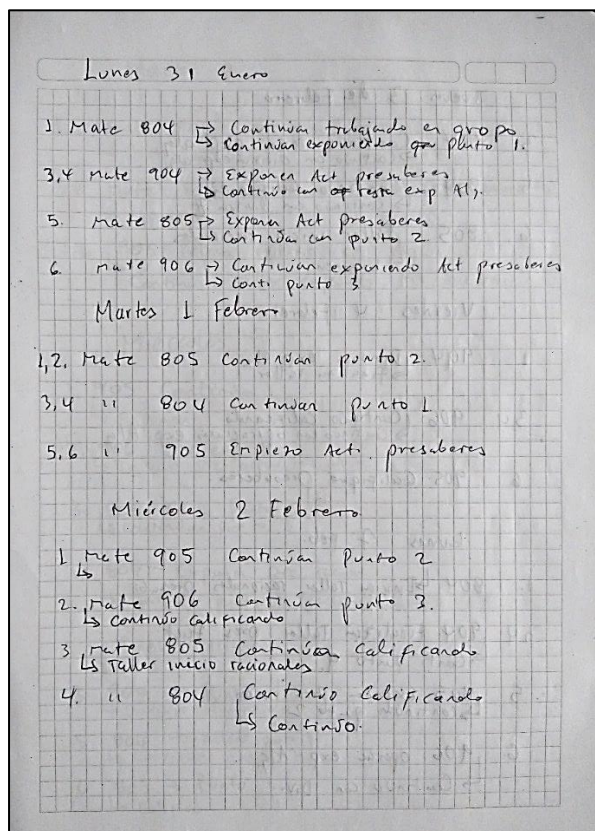 Lunes 31 Enero
1. Mate 804 → Continúan trabajando en grupo
↳ Continúan exponiendo punto 1.
3,4 Mate 904 → Exponen Act presaberes
↳ Continúo con resta exp Alj.
5. Mate 805 → Exponen Act presaberes
↳ Continúan con punto 2
6. Mate 906 → Continúan exponiendo Act presaberes
↳ Conti punto 3
Martes 1 Febrero
1,2. Mate 805 Continúan punto 2.
3,4 " 804 Continúan punto 1
5,6 " 905 Empiezo Acti. presaberes
Miércoles 2 Febrero
1 Mate 905 Continúan Punto 2
↳
2. Mate 906 Continúan punto 3.
↳ Continúo calificando
3 Mate 805 Continúan Calificando
↳ Taller inicio racionales
4. " 804 Continúo Calificando
↳ Continúo.